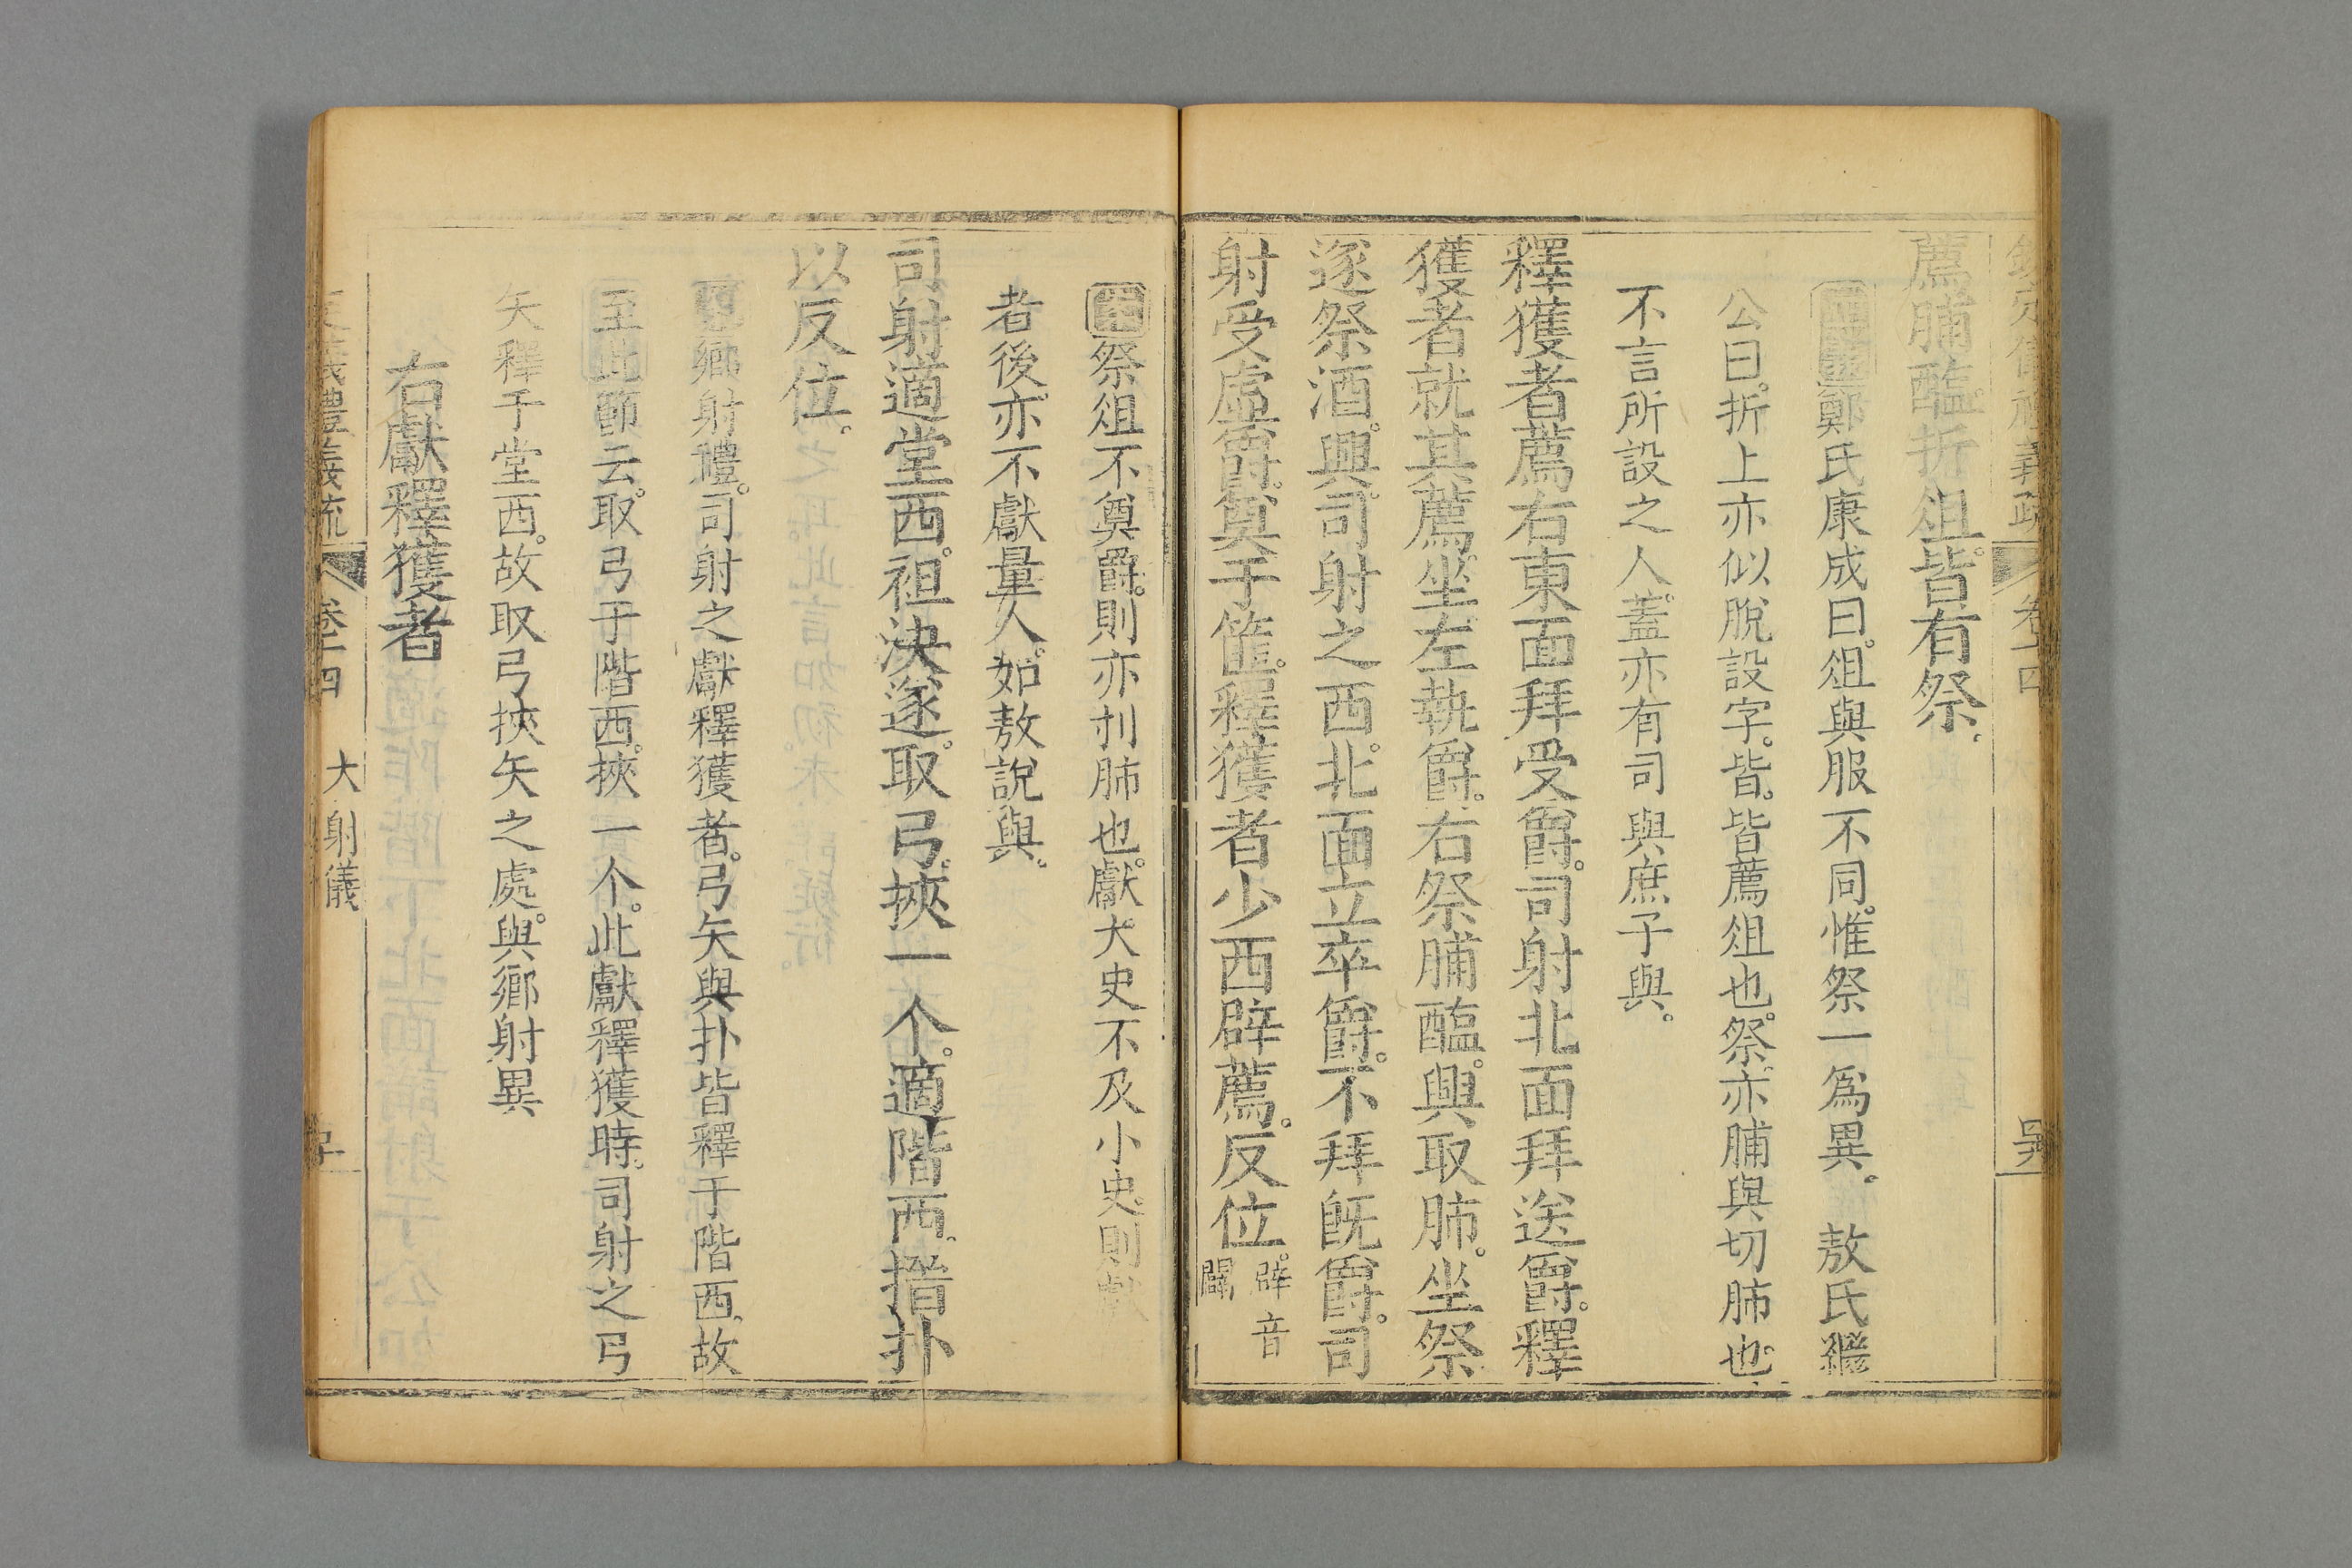 薦脯醢。折俎。皆有祭。
鄭氏康成曰。俎與服不同。惟祭一為異。 敖氏繼
公曰。折上亦似脫設字。皆。皆薦俎也。祭。亦脯與切肺也。
不言所設之人。蓋亦有司與庶子與。
釋獲者薦右東面拜受爵。司射北面拜送爵。釋
獲者就其薦坐。左執爵。右祭脯醢。興取肺。坐祭
遂祭酒。興。司射之西。北面立卒爵。不拜既爵。司
射受虛爵。奠于篚。釋獲者少西辟薦。反位。辟音
闢
祭俎不奠爵。則亦刌肺也。獻大史不及小史。則獻
者後。亦不獻量人。如敖說與。
司射適堂西。袒決遂。取弓。挾一个。適階西。搢扑
以反位。
鄉射禮。司射之獻釋獲者。弓矢與扑皆釋于階西。故
至此節云。取弓于階西。挾一个。此獻釋獲時。司射之弓
矢釋于堂西。故取弓挾矢之處。與鄉射異
右獻釋獲者
禮義疏 卷十四 大射儀